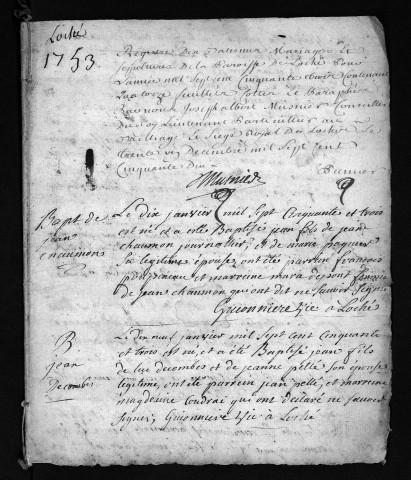 Loché
1753
Registre des Batesmes Mariages et
sepultures de la Paroisse de Loché pour
L'année mil sept cent Cinquante trois Contenant
quatorze feuillets Cottés et Paraphés
Raymond Joseph albert Musnier Conseiller
du Roy Lieutenant Particulier au
Bailliage et siege Royal de Loches le
trente un Decembre mil sept cent
Cinquante Deux
Musnier
Bapt de
jean
chaumon
Le dix janvier mil sept Cinquante et trois
est né et a esté Baptisé jean fils de jean
chaumon journallier, et de marie paquier
sa legitime épouse, ont été parrain francois
et marraine femme
de jean chaumon qui ont dit ne savoir signer
Guionniere Vic a Loché
B
jean
Decombes
Le dix neuf janvier mil sept cent Cinquante
et trois est né, et a été Baptisé jean fils
de luc decombes et de jeanne pellé son epouse
legitime, ont été parrain jean pellé, et marraine
magdeleine coudrai qui ont déclaré ne savoir
signer, Guionniere Vic a Loché